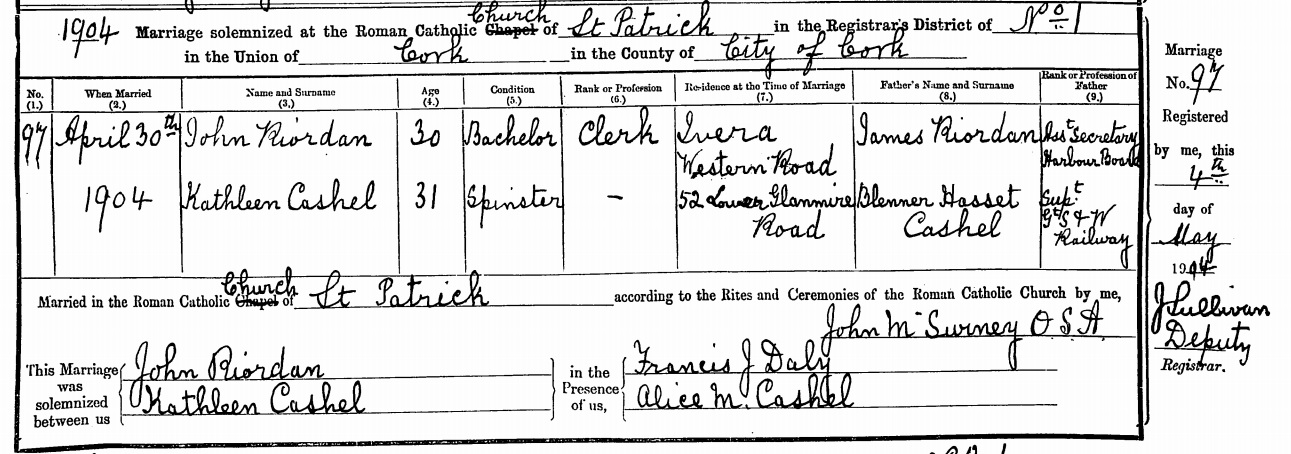 1904 Marriage solemnized at the Roman Catholic Church Chapel of St Patrick in the Registrar's District of No 1
in the Union of Cork in the County of City of Cork
No. (1.) When Married (2.) Name and Surname (3.) Age (4.) Condition (5.) Rank or Profession (6.) Residence at the Time of Marriage (7.) Father's Name and Surname (8.) Rank or Profession of Father (9.)
97 April 30th John Riordan 30 Bachelor Clerk Ivera James Riordan Asst Secretary
Western Road Harbour Board
1904 Kathleen Cashel 31 Spinster – 52 Lower Glanmire Blenner Hasset Supt
Road Cashel Gt S & W
Railway
Married in the Roman Catholic Church Chapel of St Patrick according to the Rites and Ceremonies of the Roman Catholic Church by me,
John McSwiney O S A
This Marriage was solemnized between us
John Riordan
Kathleen Cashel
in the Presence of us,
Francis J Daly
Alice M. Cashel
Marriage
No. 97
Registered
by me, this
4th
day of
May
1904
J Sullivan
Deputy
Registrar.